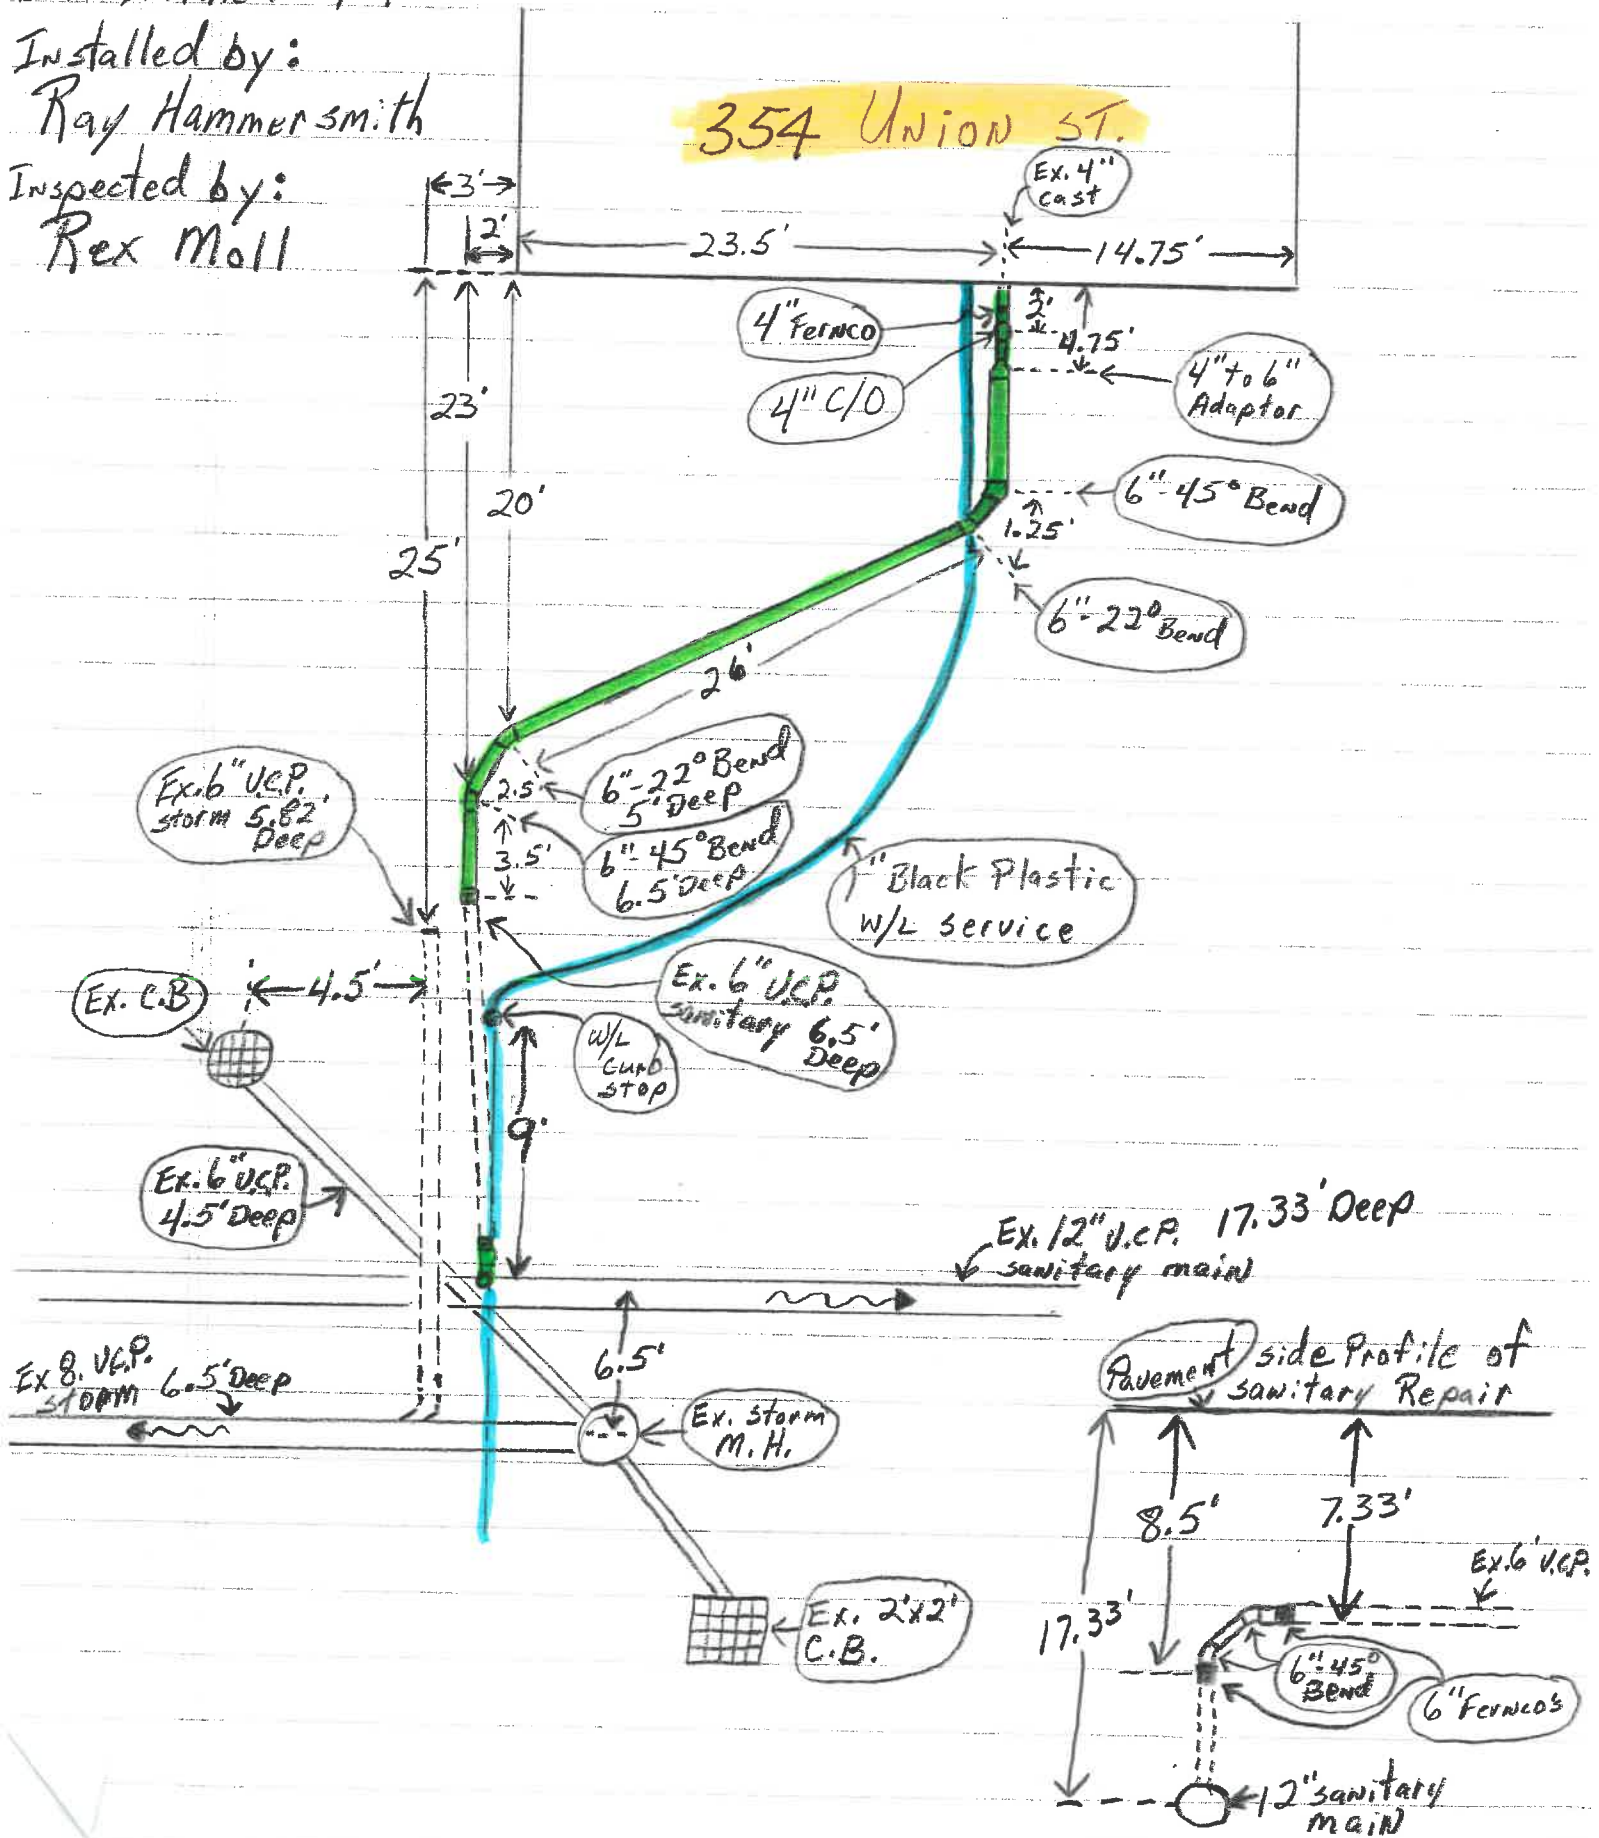 Installed by:
Ray Hammersmith
Inspected by:
Rex Moll
354 UNION ST.
Ex. 4"
cast
3'
2'
23.5'
14.75'
4" Fernco
4" C/O
3'
4.75'
4" to 6"
Adaptor
23'
20'
25'
6"-45° Bend
1.25'
6"-22° Bend
26'
Ex. 6" V.C.P.
storm 5.82'
Deep
2.5'
6"-22° Bend
5' Deep
3.5'
6"-45° Bend
6.5' Deep
1" Black Plastic
W/L service
Ex. C.B
4.5'
Ex. 6" V.C.P.
sanitary 6.5'
Deep
W/L
curb
stop
9'
Ex. 6" V.C.P.
4.5' Deep
Ex. 12" V.C.P. 17.33' Deep
sanitary main
6.5'
Ex 8. V.C.P.
STORM 6.5' Deep
Ex. Storm
M.H.
Pavement side Profile of
sanitary Repair
8.5'
7.33'
17.33'
Ex. 6' V.C.P.
6"-45°
Bend
6" Fernco's
Ex. 2'x2'
C.B.
12" sanitary
main